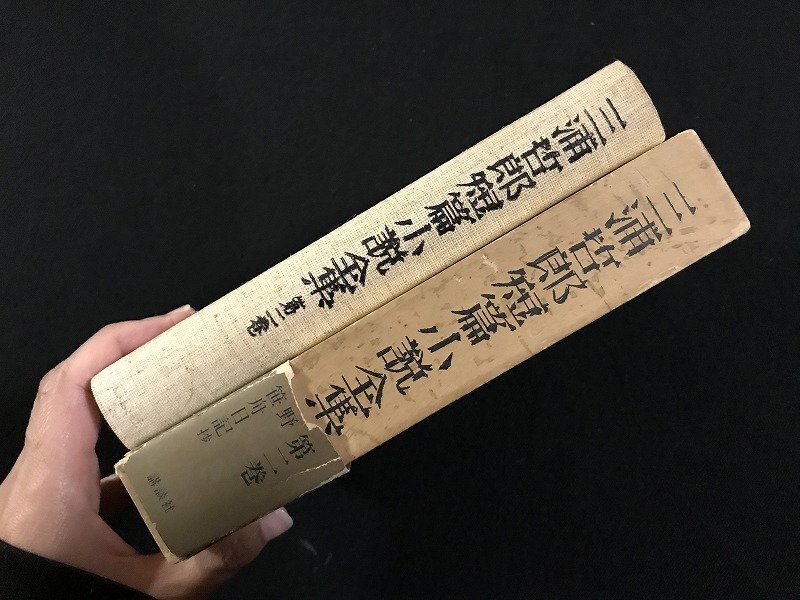 三浦哲郎短篇小説全集 第二巻
三浦哲郎短篇小説全集
第二巻
野
笹舟日記抄
講談社